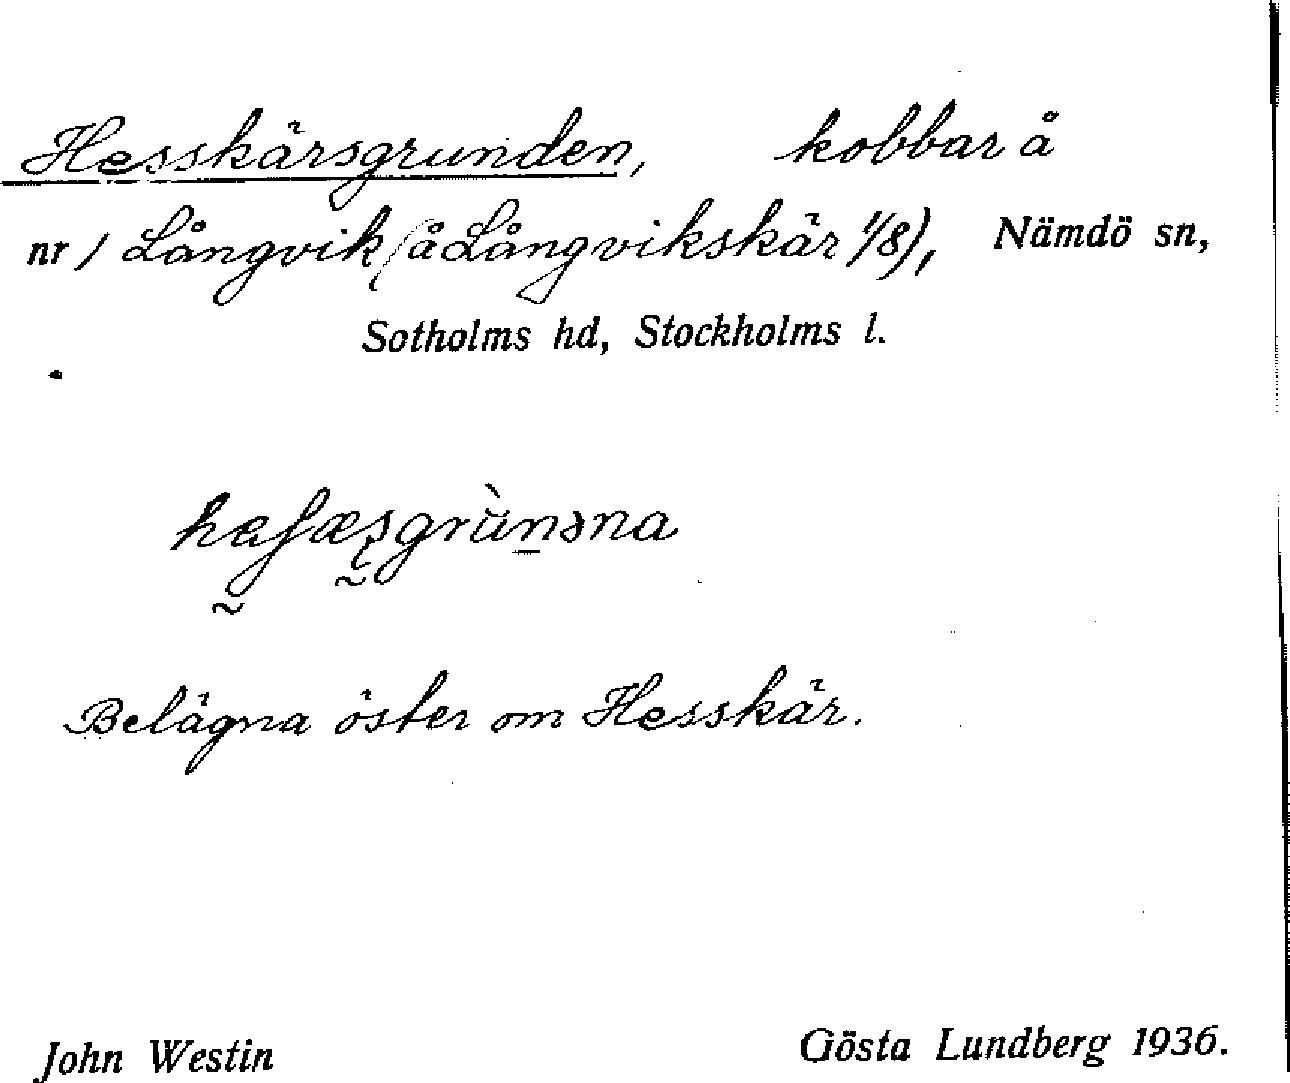 Hesskärsgrunden, kobbar å
nr 1 Långvik (å Långvikskär 1/8), Nämdö sn,
Sotholms hd, Stockholms l.
heʃæșgrùnəna
Belägna öster om Hesskär.
John Westin Gösta Lundberg 1936.